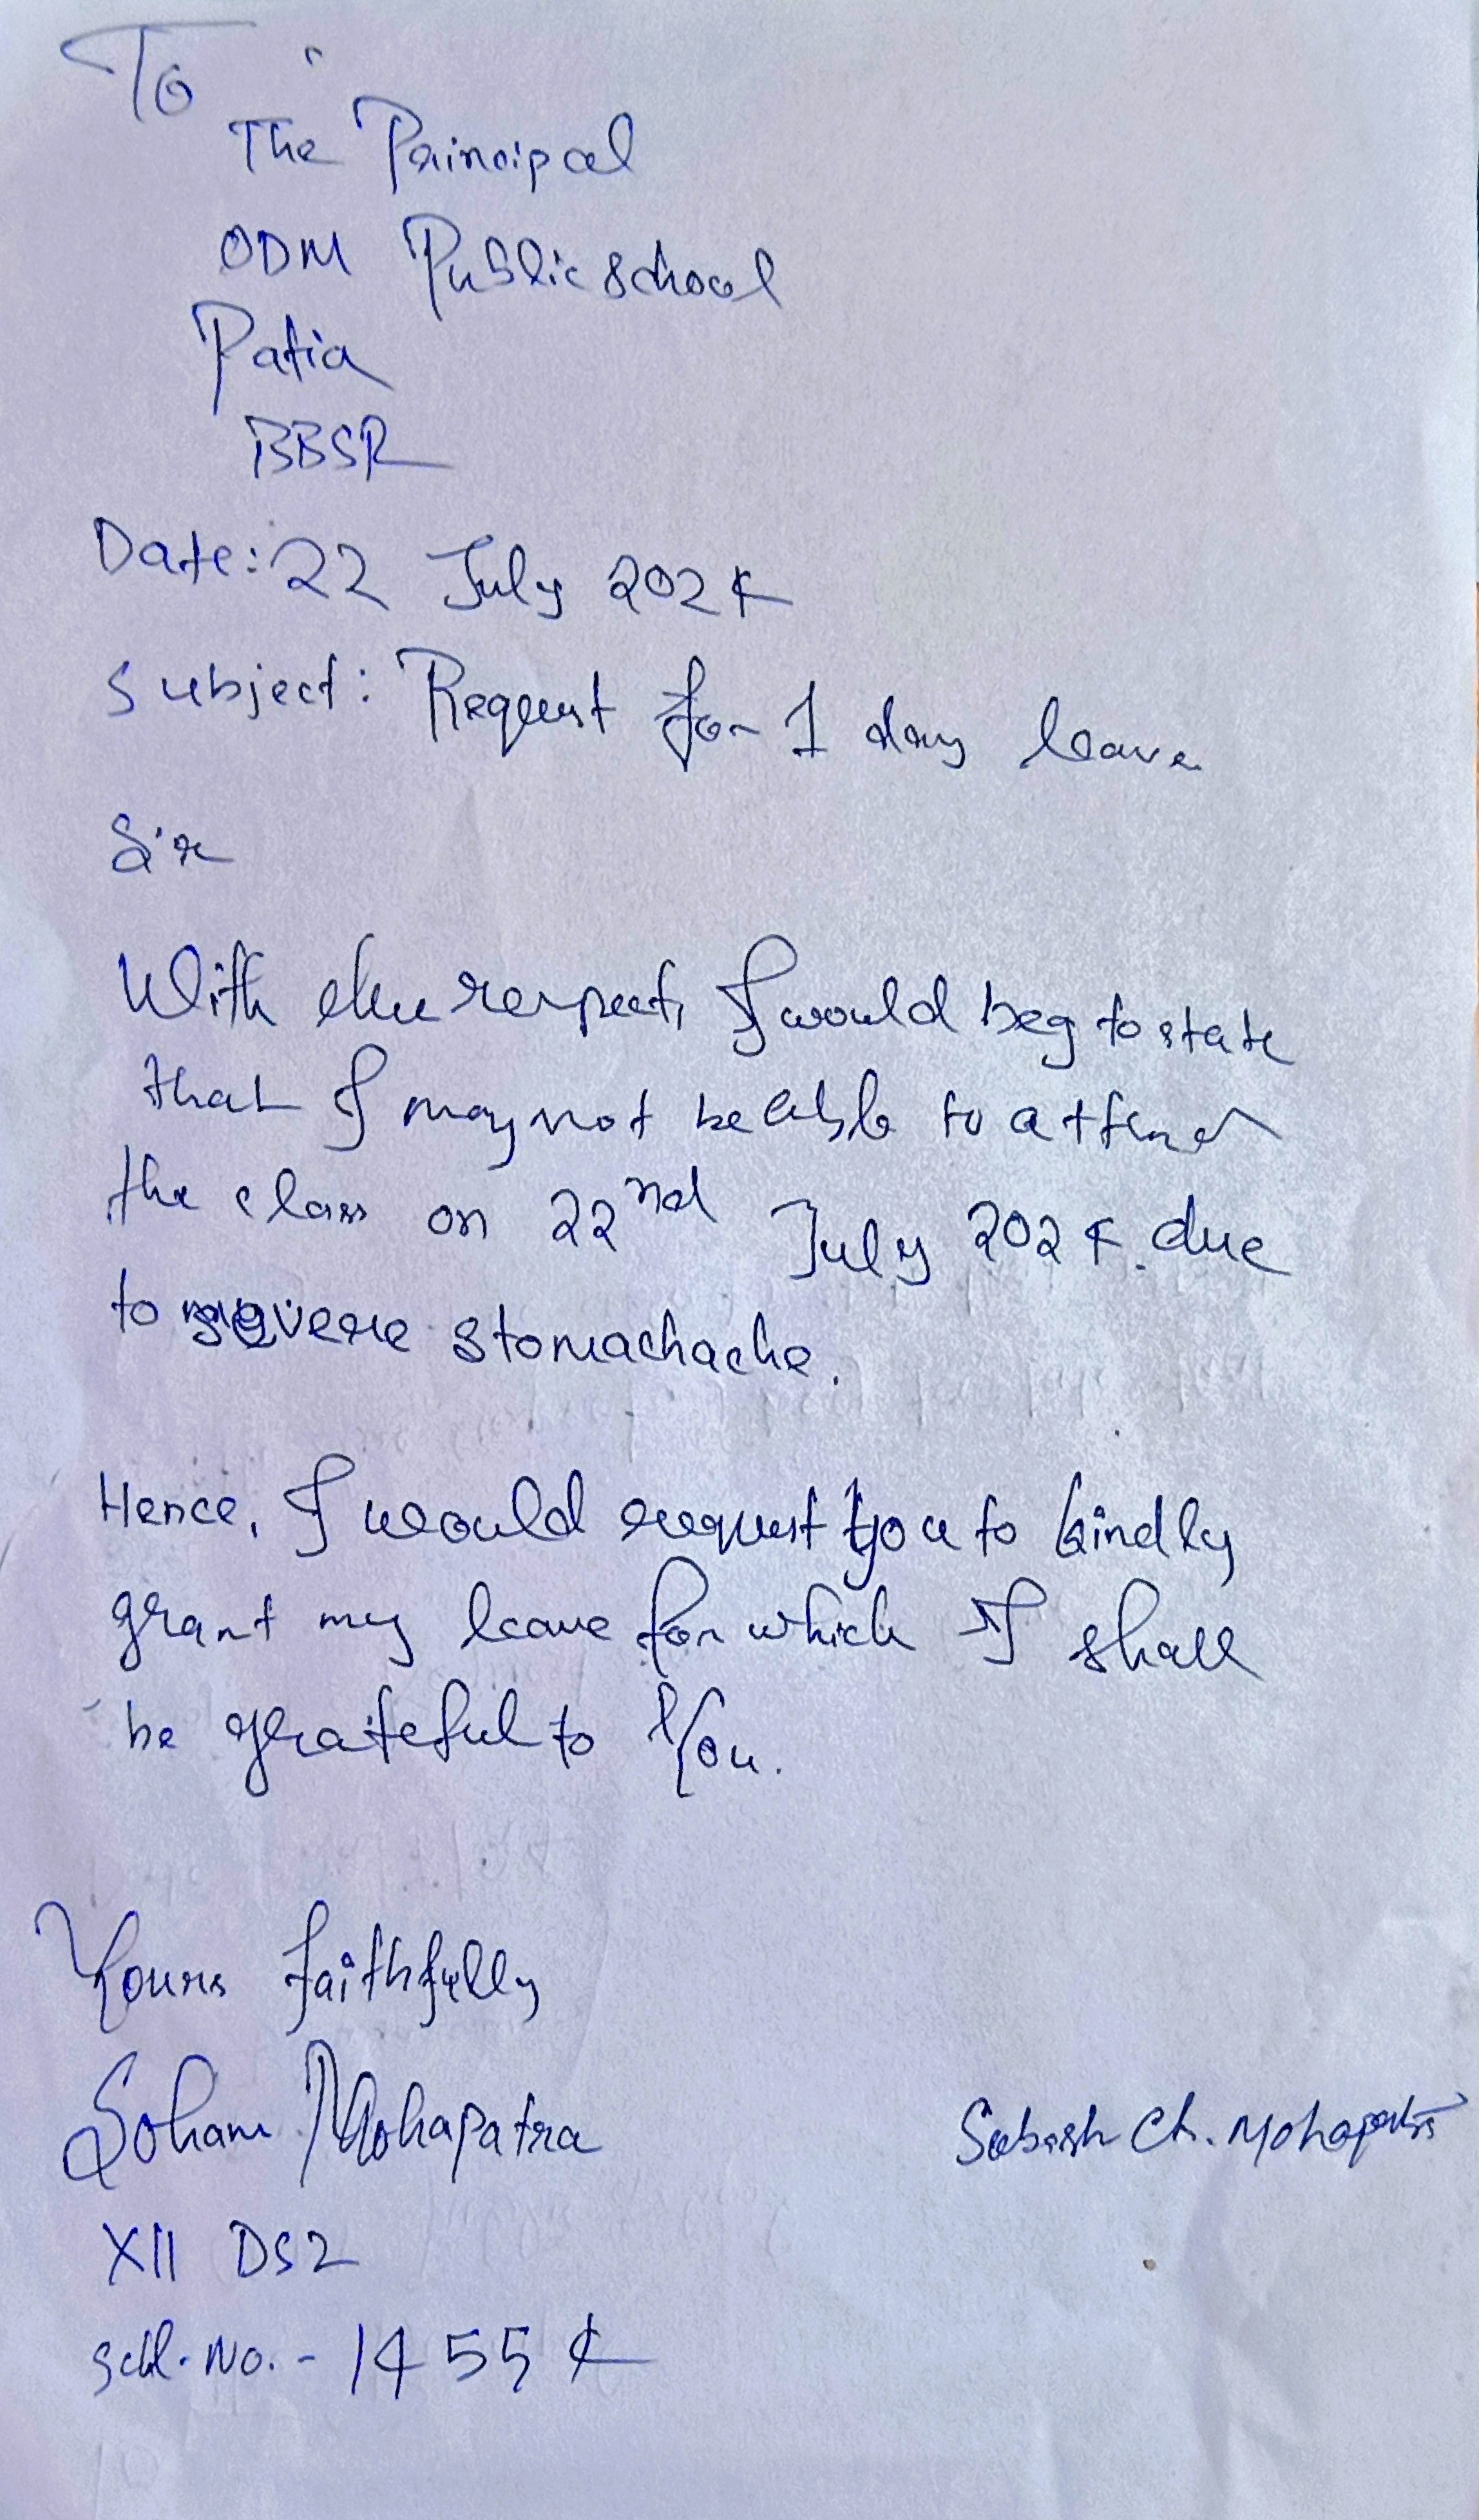 To
The Principal
ODM Public School
Patia
BBSR
Date: 22 July 2024
Subject: Request for 1 day leave
Sir
With due respect, I would beg to state
that I may not be able to attend
the class on 22nd July 2024. due
to severe stomachache.
Hence, I would request you to kindly
grant my leave for which I shall
be grateful to You.
Yours faithfully
Soham Mohapatra
Subash Ch. Mohapatra
XII DS2
Schl. No. - 14554